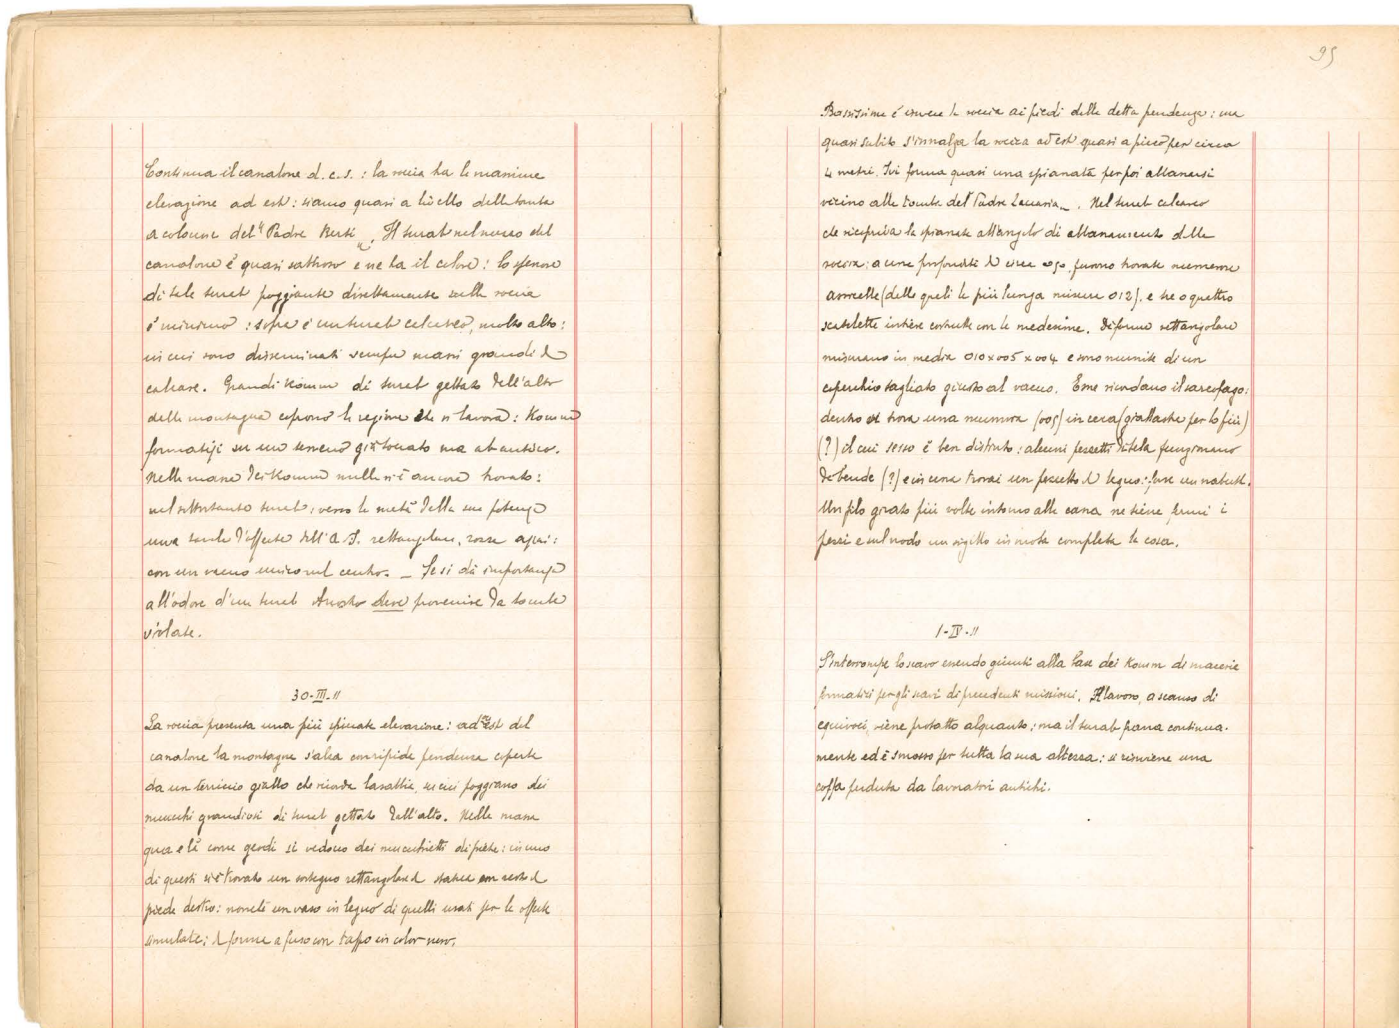 Continua il canalone d. c. s. : la roccia ha le massime
elevazione ad est: siamo quasi a livello delle tombe
a colonne del "Padre Bersi". Il turab nel mezzo del
canalone è quasi sabbioso e ne ha il colore: lo spessore
di tale turab poggiante direttamente sulla roccia
è minimo: sopra è un turab calcareo, molto alto:
in cui sono disseminati sempre massi grandi di
calcare. Grandi Komm di turab gettato dall'alto
della montagna coprono la regione che si lavora: Komm
formatisi su un terreno già toccato ma ab antico.
Nelle masse dei Komm nulla si è ancora trovato:
nel sottostante turab, verso la metà della sua potenza
una tavola d'offerte dell'A. I. rettangolare, rozza assai:
con un vacuo unico nel centro. _ Se si dà importanza
all'odore d'un turab questo deve provenire da tombe
violate.
30-III-11
La roccia presenta una più spiccata elevazione: ad est del
canalone la montagna s'alza con ripide pendenze coperte
da un terriccio giallo che ricorda la sabbia, su cui poggiano dei
mucchi grandiosi di turab gettato dall'alto. Nella massa
qua e là come geodi si vedono dei mucchietti di pietre: in uno
di questi si è trovato un sostegno rettangolare di statua con resto di
piede destro: nonché un vaso in legno di quelli usati per le offerte
simulate: di forma a fuso con tappo in color nero.
95
Bassissima è invece la roccia ai piedi della detta pendenza: ma
quasi subito s'innalza la roccia ad est quasi a picco per circa
4 metri. Ivi forma quasi una spianata per poi abbassarsi
vicino alle tombe del "Padre Zaccaria_". Nel turab calcareo
che ricopriva la spianata all'angolo di abbassamento della
roccia: a una profondità di circa 0,50 furono trovate numerose
assicelle (delle quali la più lunga misura 012), e tre o quattro
scatolette intiere costrutte con le medesime. Di forma rettangolare
misurano in media 010 x 005 x 004 e sono munite di un
coperchio tagliato giusto al vacuo. Esse ricordano il sarcofago:
dentro si trova una mummia (005) in cera (giallastra per lo più)
(?) il cui sesso è ben distinto: alcuni pezzetti di tela fungevano
da bende (?) e in una trovai un pezzetto di legno: forse un nabut.
Un filo girato più volte intorno alla cassa ne tiene fermi i
pezzi e sul nodo un sigillo in mota completa la cosa.
1-IV-11
S'interrompe lo scavo essendo giunti alla base dei Komm di macerie
formatisi per gli scavi di precedenti missioni. Il lavoro, a scanso di
equivoci, viene protratto alquanto: ma il turab frana continua-
mente ed è smosso per tutta la sua altezza: si rinviene una
coffa perduta da lavoratori antichi.